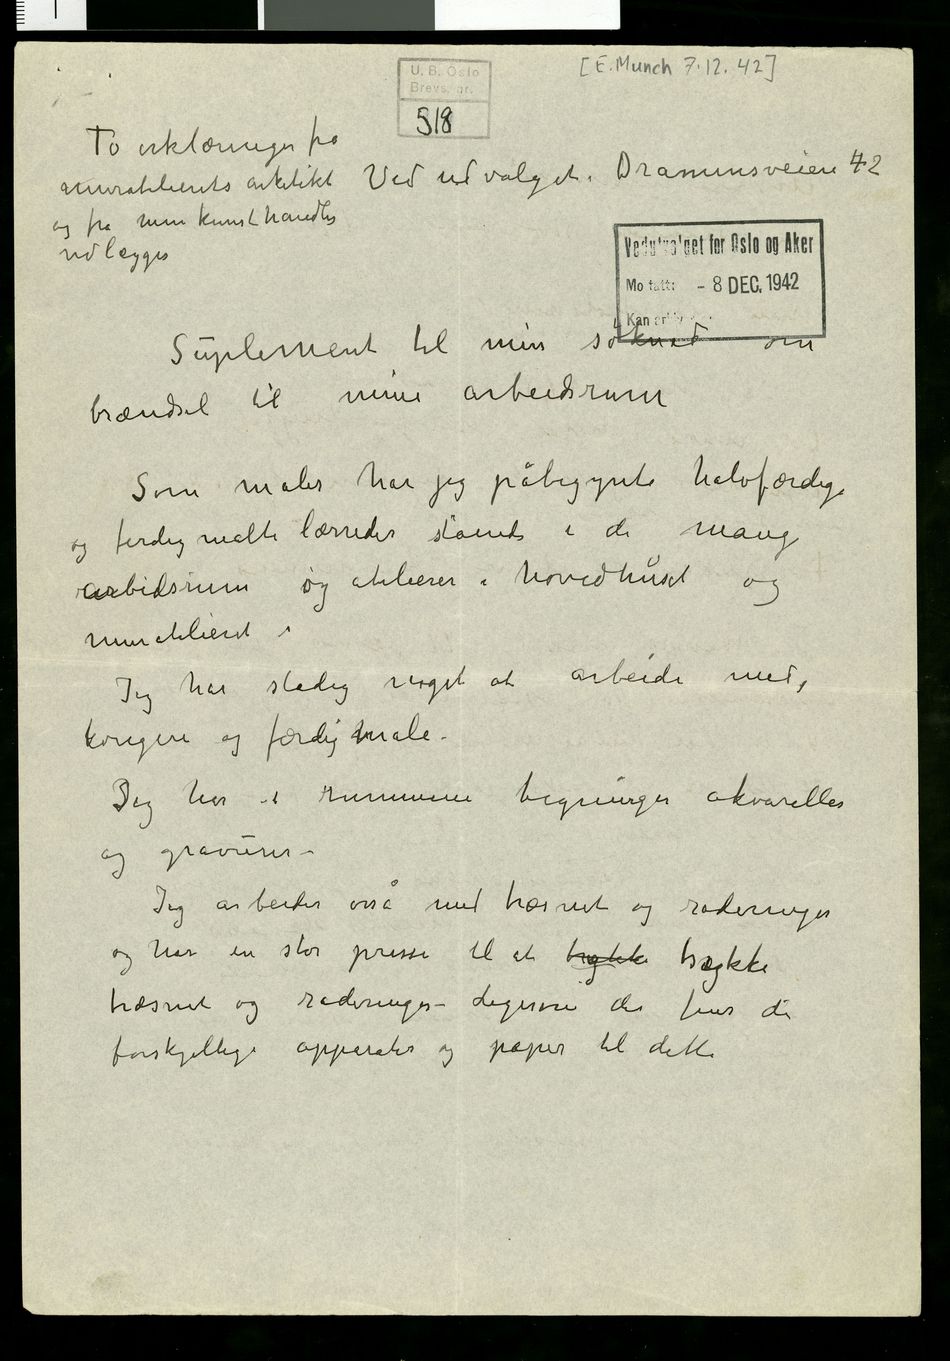 [E. Munch 7.12.42]
U. B. Oslo
Brevs. nr.
518
To erklæringer fra
muratelierets arkitekt
og fra min kunsthandler
vedlægges
Ved udvalget. Drammensveien 42
Vedutvalget for Oslo og Aker
Mottatt: - 8 DEC. 1942
Suplement til min söknad om
brændsel til mine arbeidsrum
Som maler har jeg påbegynte halvfærdige
og ferdigmalte lærreder stående i de mange
arbidsrum og atelierer i hovedhuset og
muratelieret.
Jeg har stadig noget at arbeide med,
korigere og færdigmale.
Jeg har i rummene tegninger akvareller
og gravurer –
Jeg arbeider osså med træsnit og raderinger
og har en stor presse til at trykke
træsnit og raderinger – Ligesom der fins de
forskjellige apparater og papir til dette